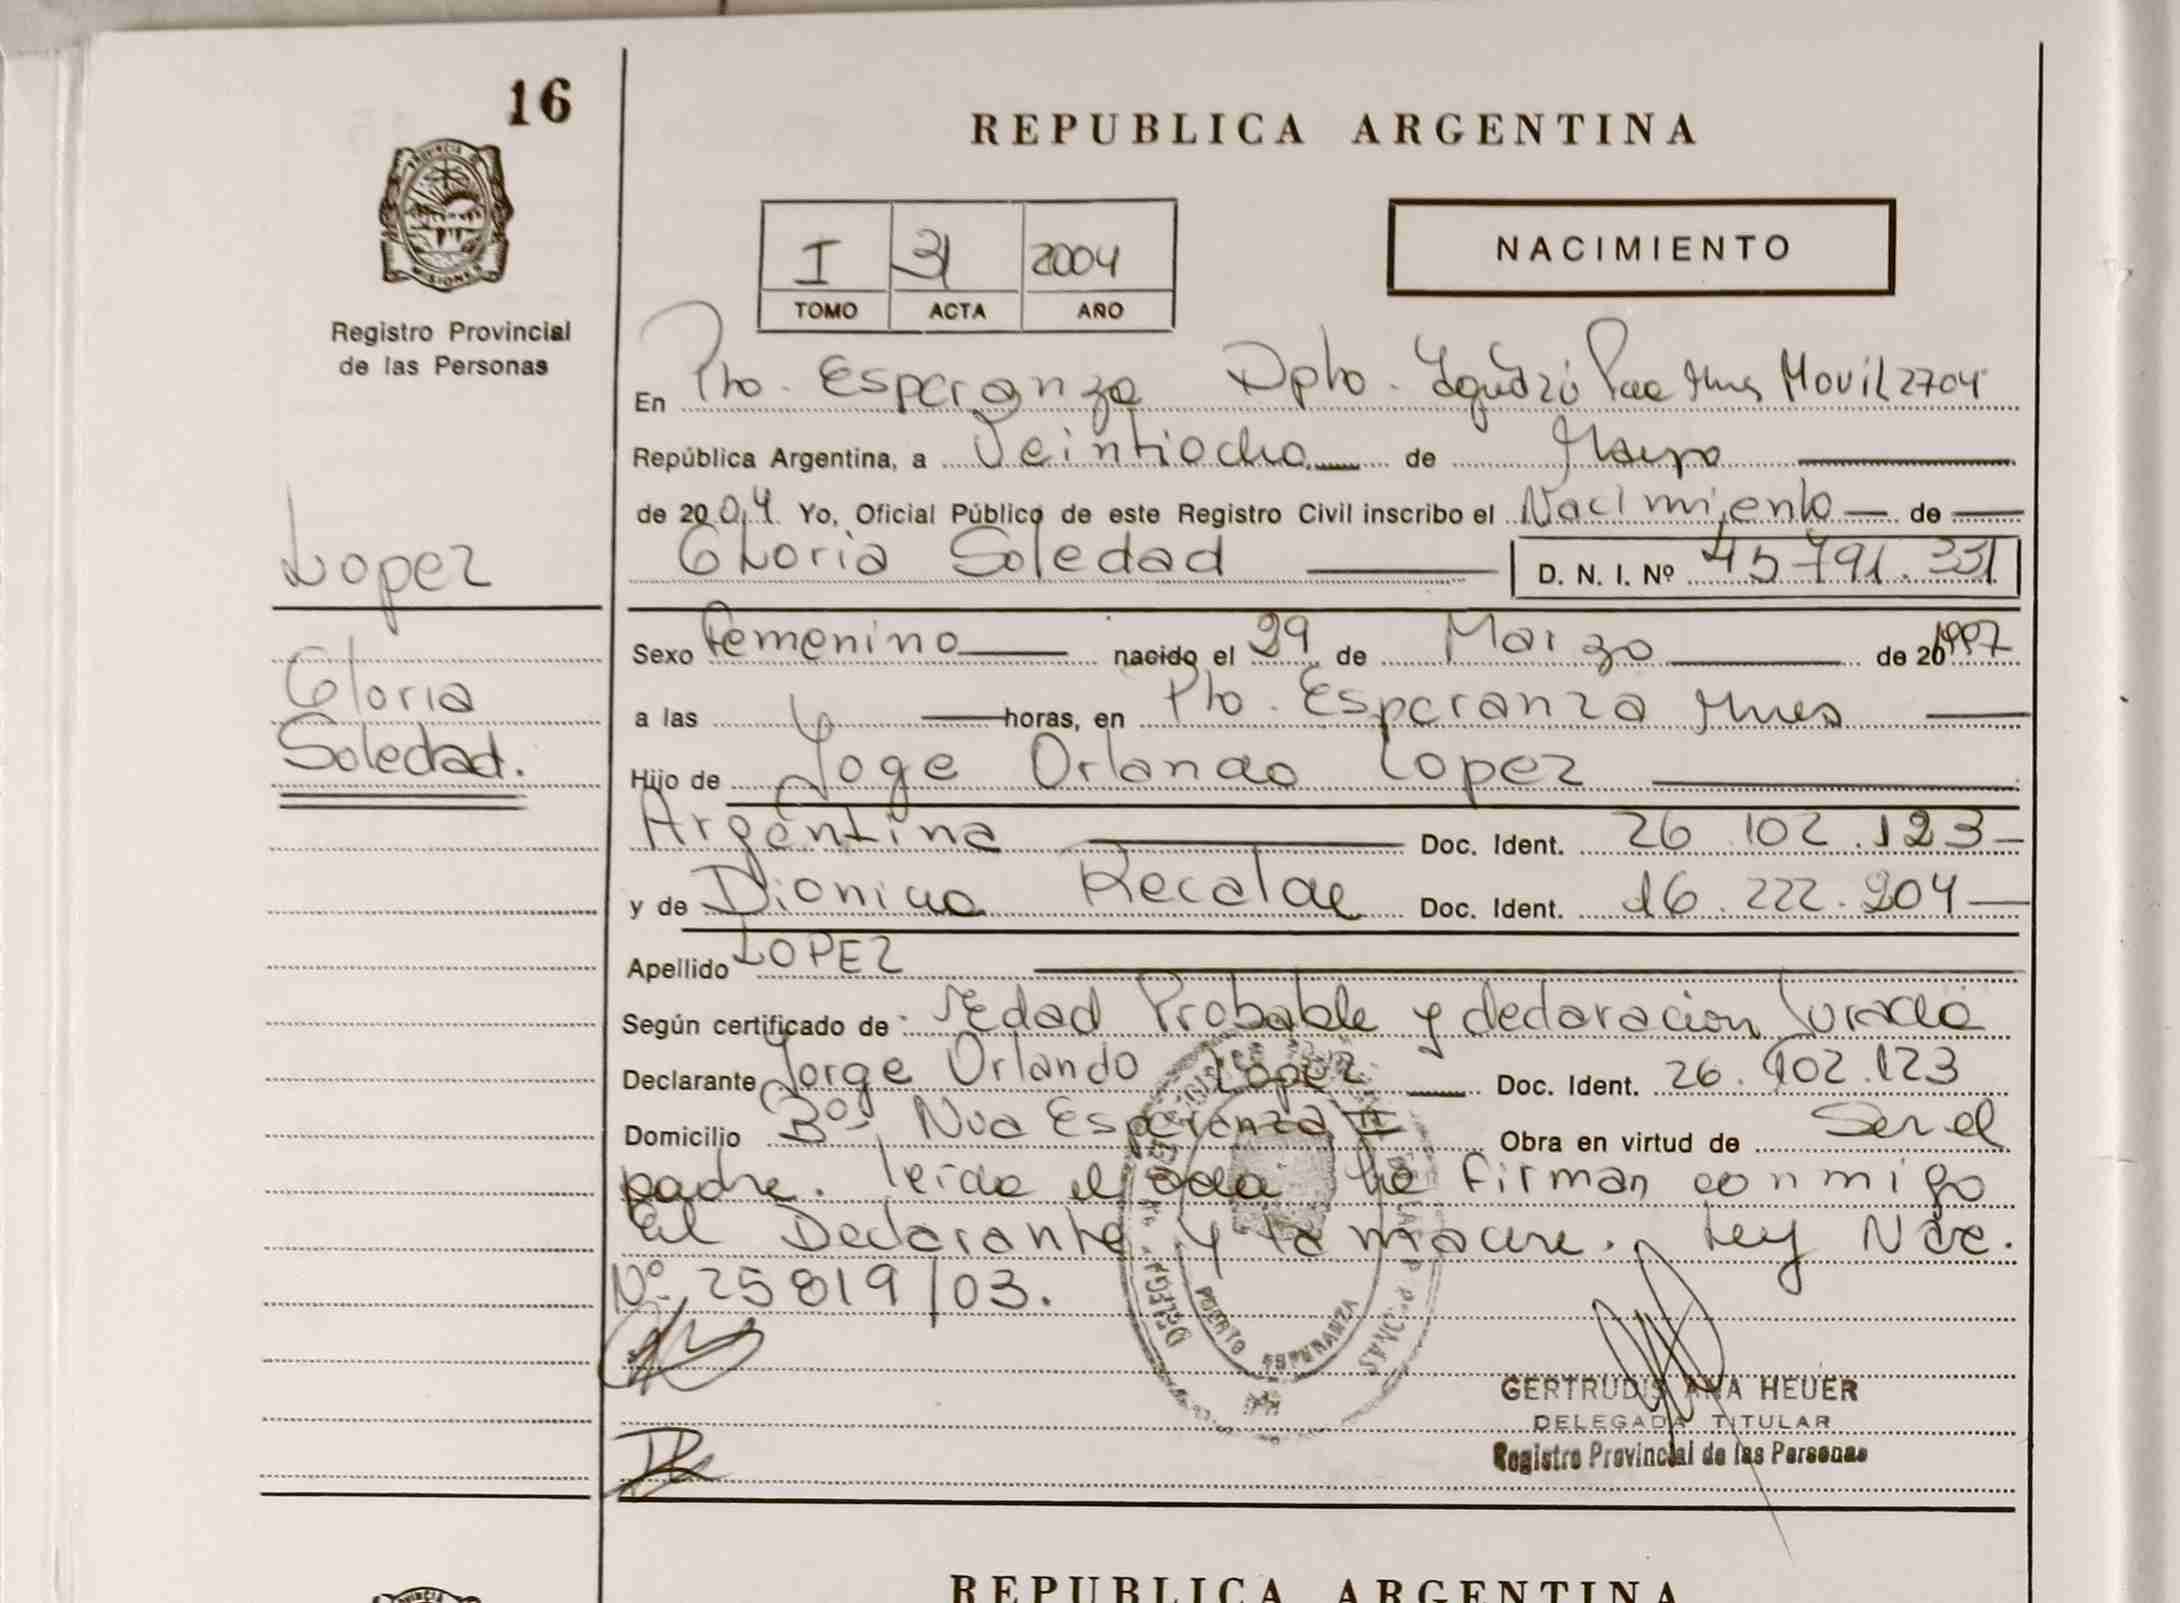 16
REPUBLICA ARGENTINA
PROVINCIA DE
MISIONES
Registro Provincial
de las Personas
I 31 2004
TOMO ACTA AÑO
NACIMIENTO
En Pto. Esperanza Dpto. Iguazú Mnes Movil 2704
República Argentina, a Veintiocho de Mayo
de 2004 Yo, Oficial Público de este Registro Civil inscribo el Nacimiento de
Gloria Soledad D. N. I. Nº 45 791. 331
Lopez
Gloria
Soledad.
Sexo Femenino nacido el 29 de Marzo de 20 1997
a las horas, en Pto. Esperanza Mnes
Hijo de Joge Orlando Lopez
Argentina Doc. Ident. 26 102 .123
y de Recalde Doc. Ident. 16.222.204
Apellido LOPEZ
Según certificado de: Edad Probable y declaracion Jurada
Declarante Jorge Orlando Lopez Doc. Ident. 26.102.123
Domicilio Bº, Nva Esperanza II Obra en virtud de Ser el
padre. leida el acta la firman conmigo
el Declarante y la madre. Ley Nac.
Nº 25819/03.
PUERTO ESPERANZA
GERTRUDIS ANA HEUER
DELEGADA TITULAR
Registro Provincial de las Personas
REPUBLICA ARGENTINA